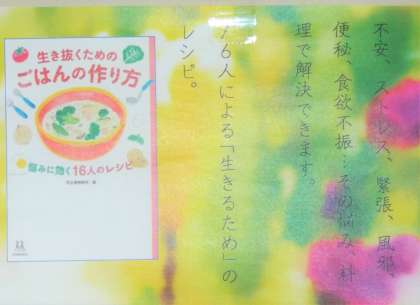 生き抜くための
ごはんの作り方
悩みに効く16人のレシピ
不安、ストレス、緊張、風邪、
便秘、食欲不振…その悩み、料
理で解決できます。
16人による「生きるため」の
レシピ。